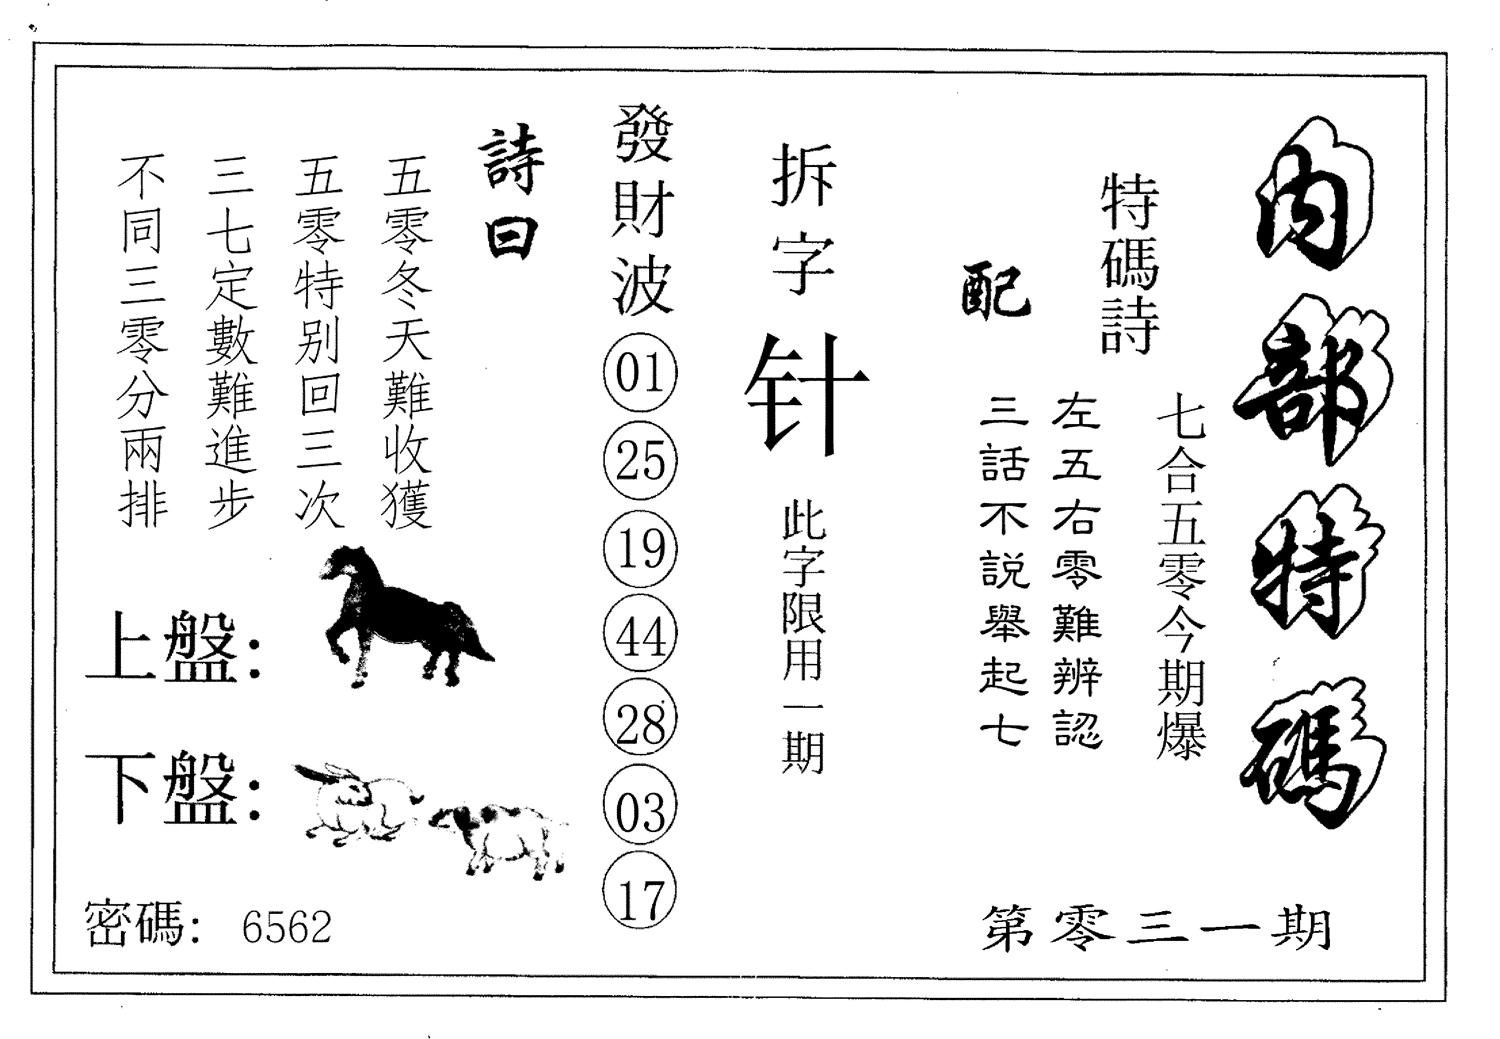 內部特碼
特碼詩
七合五零今期爆
配
左五右零難辨認
三話不説舉起七
第零三一期
拆字
针
此字限用一期
發財波
01
25
19
44
28
03
17
詩曰
五零冬天難收獲
五零特别回三次
三七定數難進步
不同三零分兩排
上盤：
下盤：
密碼： 6562